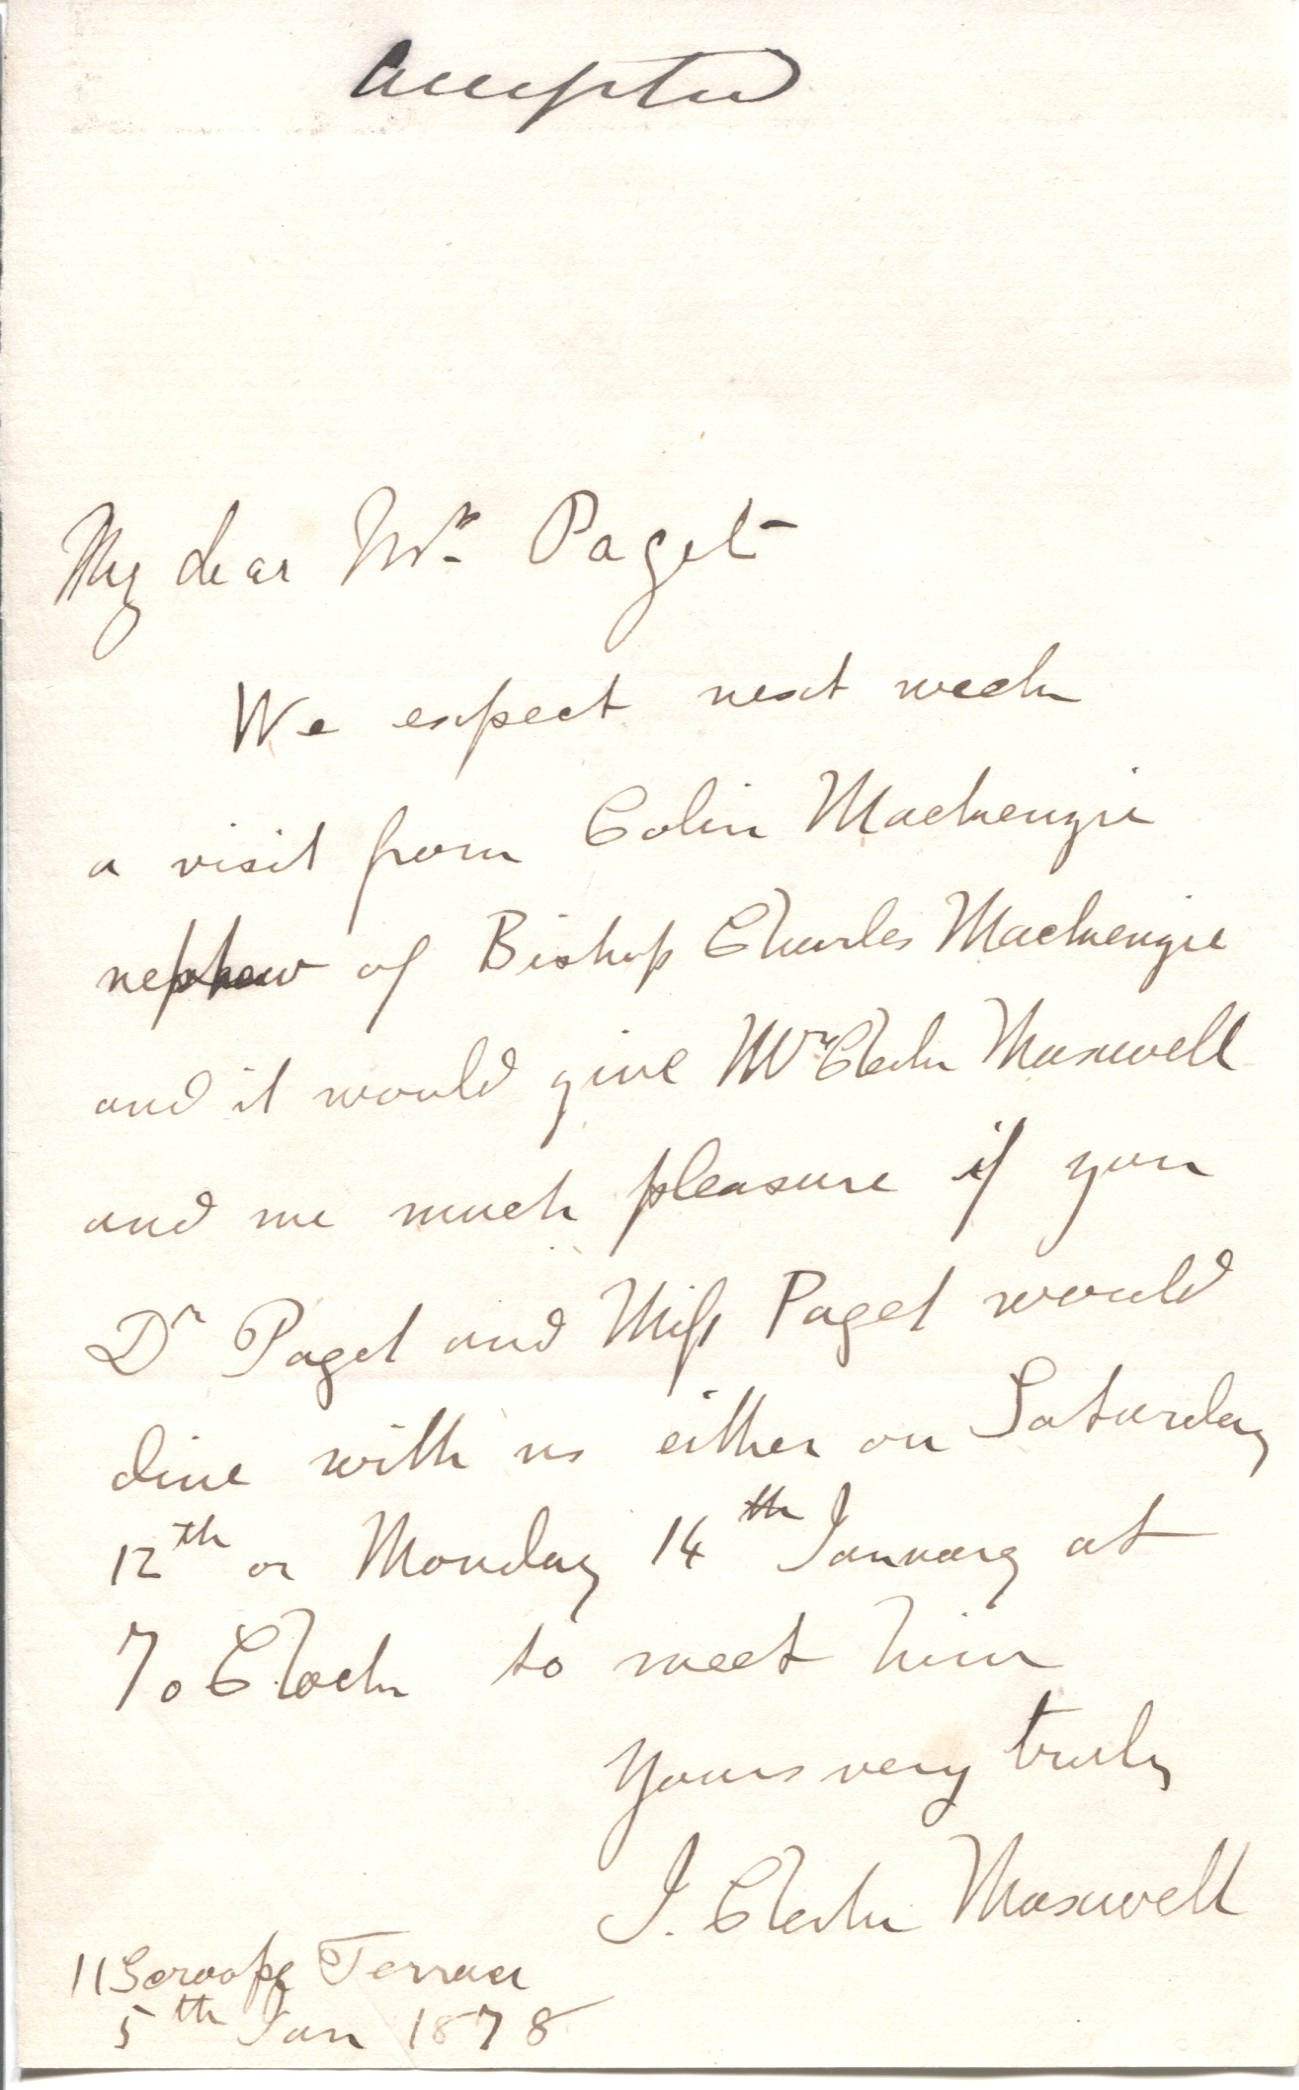 accepted
My dear Mrs. Paget
We expect next week
a visit from Colin Mackenzie
nephew of Bishop Charles Mackenzie
and it would give Mrs Clerk Maxwell
and me much pleasure if you
Dr Paget and Miss Paget would
dine with us either on Saturday
12th or Monday 14th January at
7 o Clock to meet him
Yours very truly
J. Clerk Maxwell
11 Scroope Terrace
5th Jan 1878